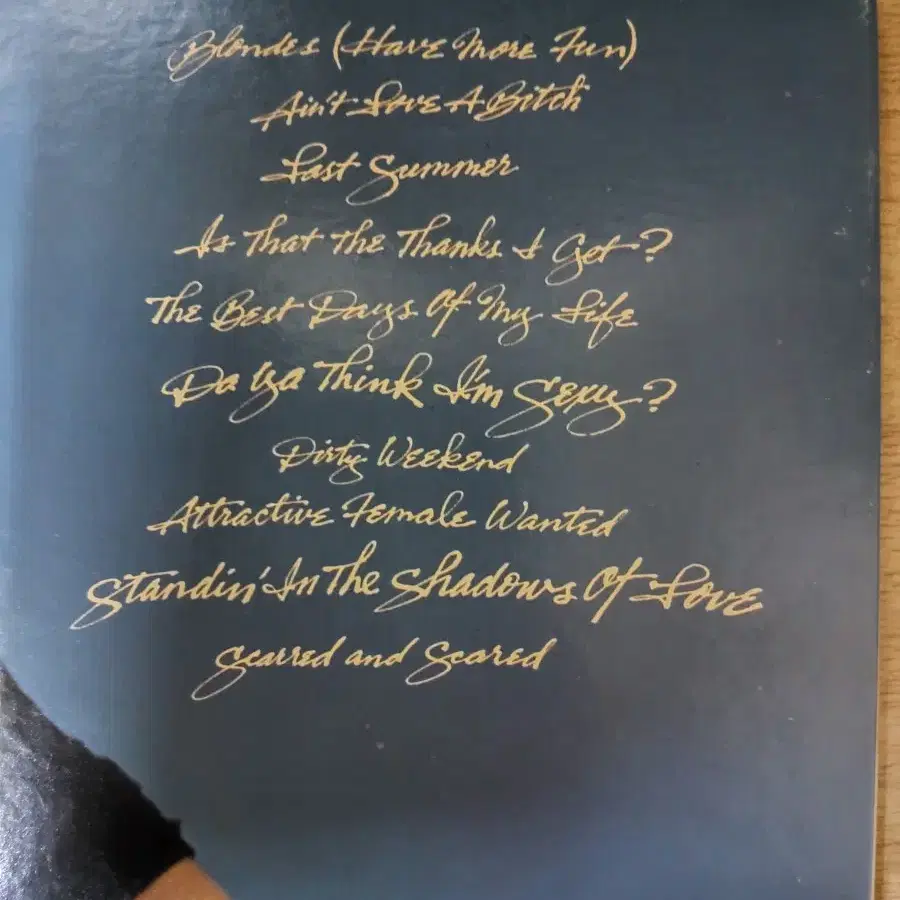 Blondes (Have More Fun)
Ain't Love A Bitch
Last Summer
Is That The Thanks I Get?
The Best Days Of My Life
Da Ya Think I'm Sexy?
Dirty Weekend
Attractive Female Wanted
Standin' In The Shadows Of Love
Scarred and Scared